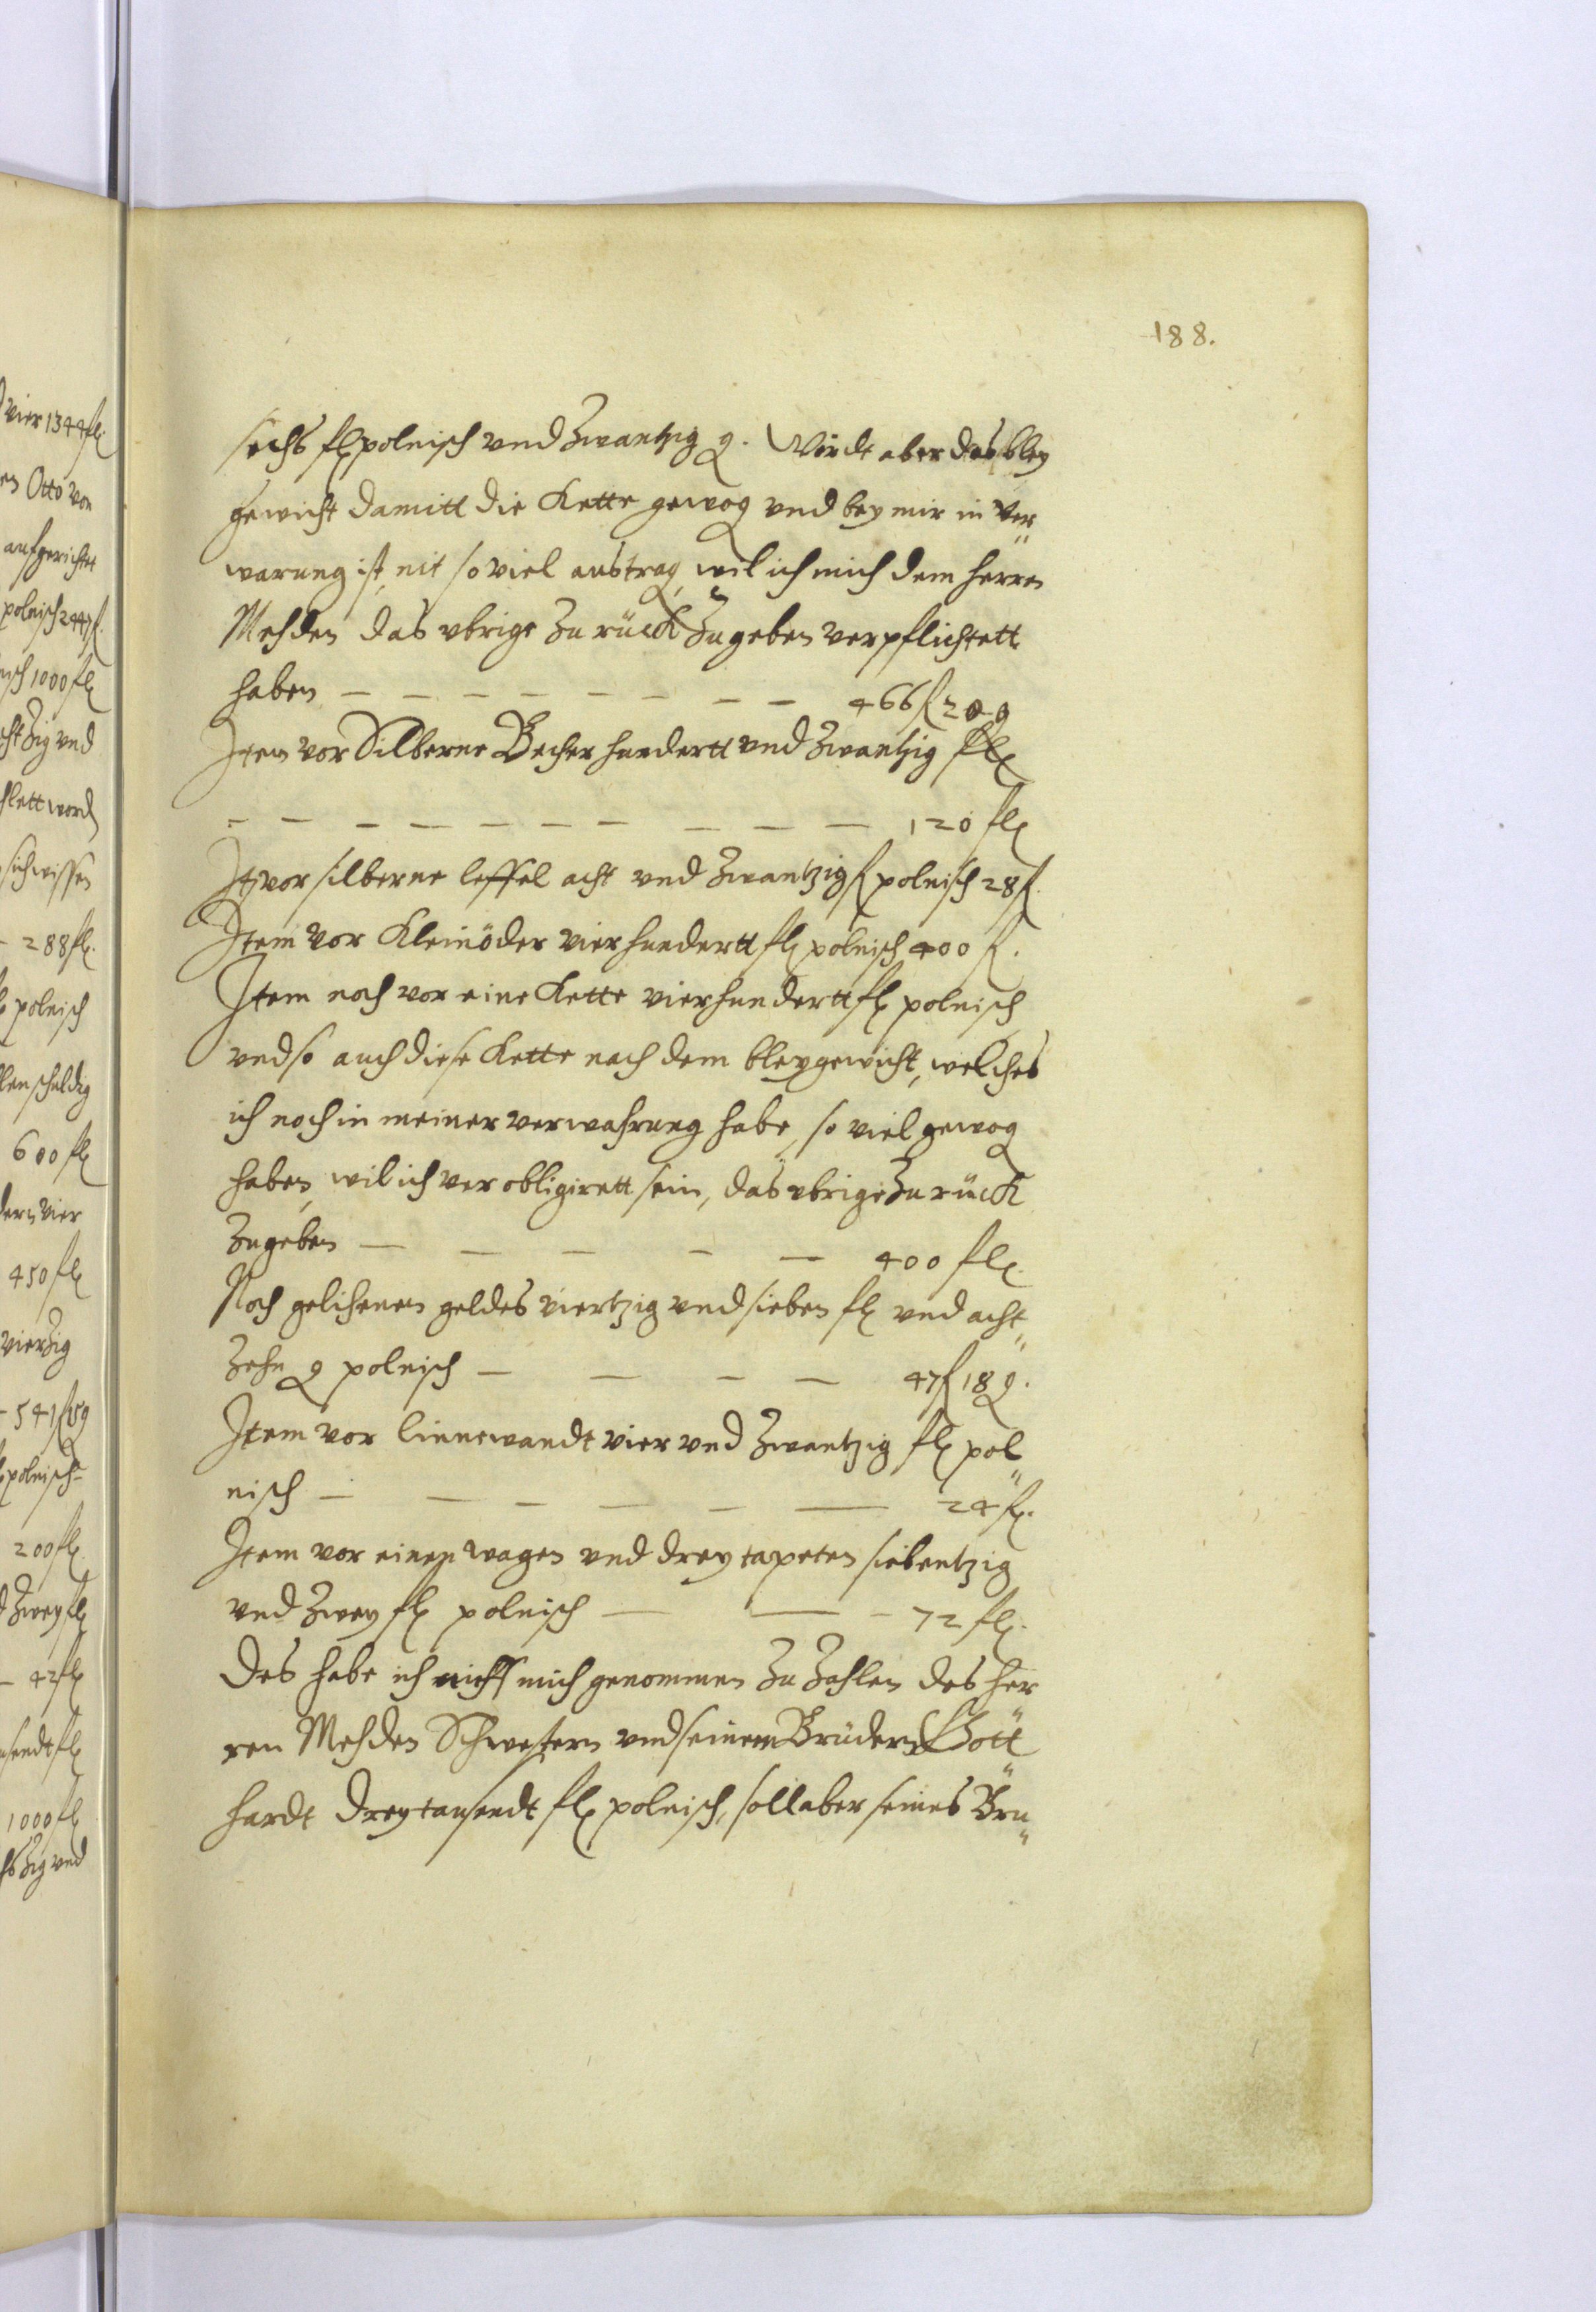 188.
sechs fl polnisch vnd Zwantzig g. Würdt aber das bley
gewicht damitt die Kette gewog vnd bey mir in Ver„
warung ist, nit so viel austrag, wil ich mich dem herren
Mehden das vbrige Zu rück Zu geben verpflichtett
haben — — — — — — — — 466 fl 20 g
Item vor Silberne Becher hundertt vnd Zwantzig fl
— — — — — — — — — — 120 fl
It vor silberne leffel acht vnd Zwantzig fl polnisch 28 fl.
Item vor Kleinöder vierhundertt fl polnisch 400 fl.
Item noch vor eine Kette vierhundertt fl polnisch
vnd so auch diese Kette nach dem bleygewicht, welches
ich noch in meiner verwahrung habe, so viel gewog
haben, wil ich ver obligirett sein, das vbrige Zu rück
Zu geben — — — — — 400 fl.
Noch gelihenen geldes viertzig vnd sieben fl vnd acht„
Zehn g polnisch — — — — 47 fl 18 g.
Item vor linnewandt vier vnd Zwantzig fl pol„
nisch — — — — — — 24 fl.
Item vor einen wagen vnd drey tapeten siebentzig
vnd Zwey fl polnisch — — — 72 fl.
Des habe ich mich genommen Zu Zahlen des her„
ren Mehden Schwestern vnd seinem Brüdern Gott„
hardt dreytausendt fl polnisch, soll aber seines Bru„
vier 1344 fl.
en Otto von
aufgerichtet
polnisch 2447 fl.
nisch 1000 fl
chtzig vnd
lett word
sich wissen
— 288 fl.
polnisch
len schuldig
600 fl
dern vier
450 fl
vierzig
— 541 fl 15 g
polnisch —
200 fl
d Zwey fl
— 42 fl
usendt fl
1000 fl
hs Zig vnd